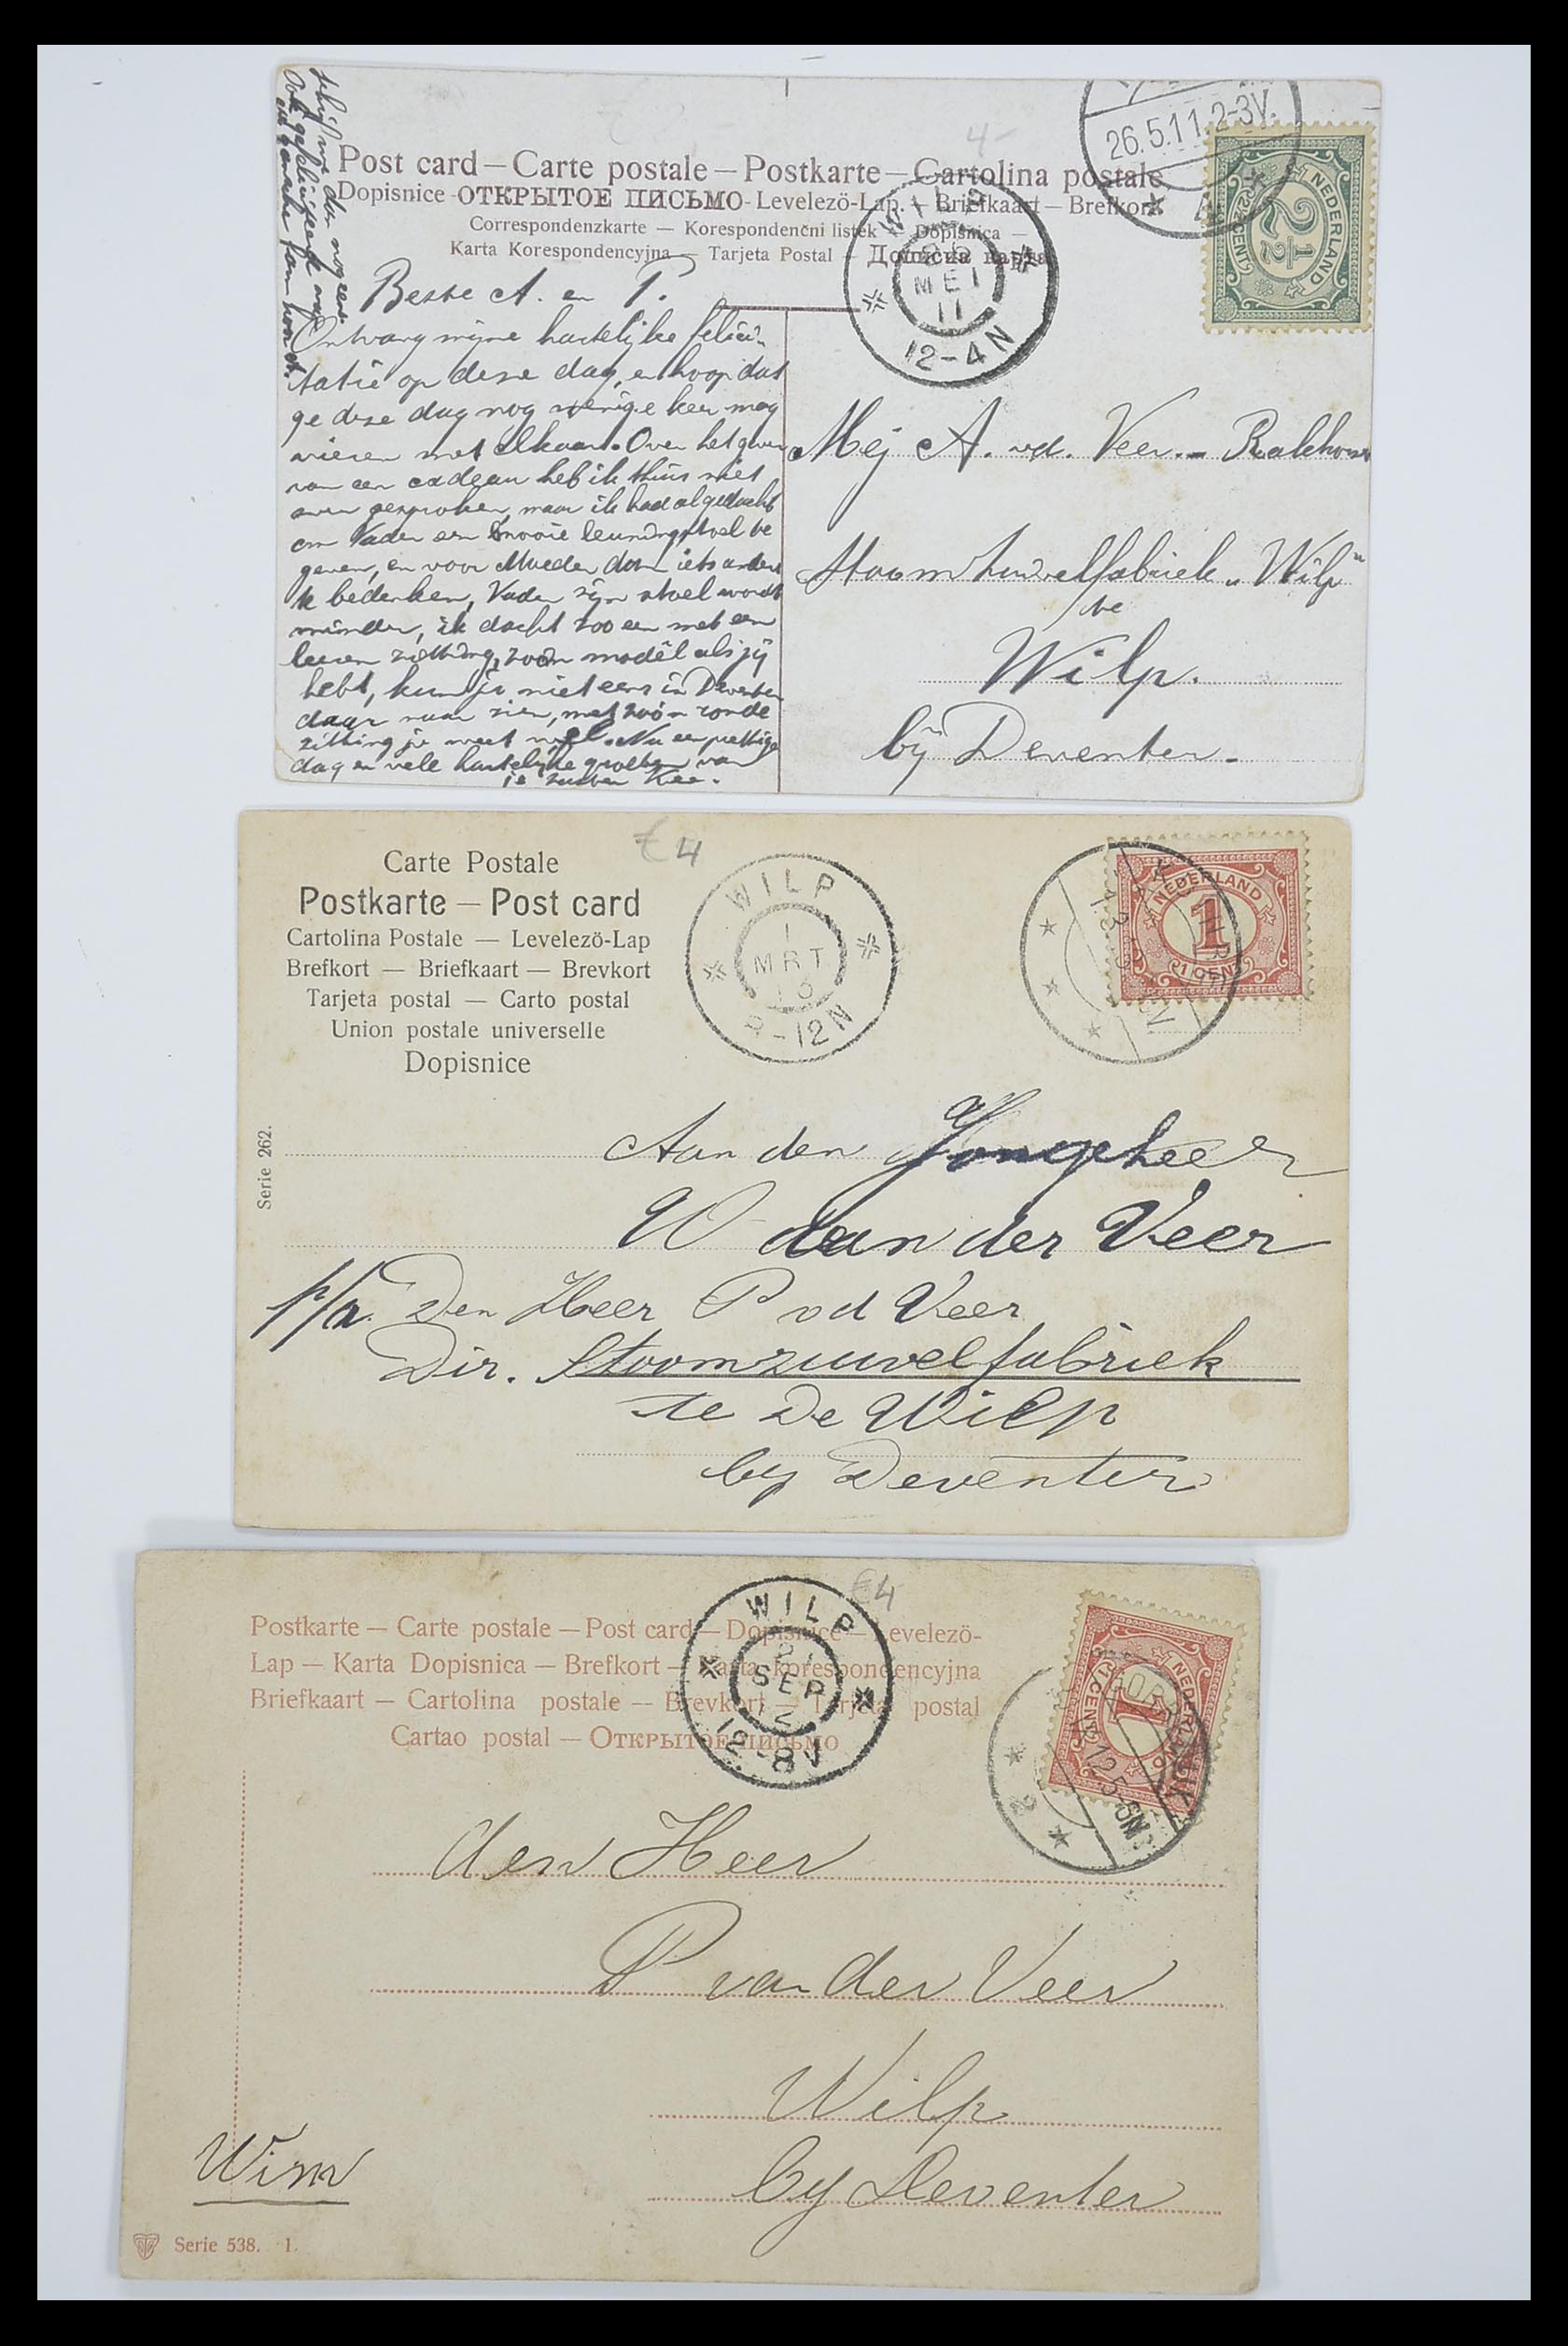 Post card — Carte postale — Postkarte — Cartolina postale
Dopisnice - ОТКРЫТОЕ ПИСЬМО - Levelezö-Lap. — Briefkaart — Brefkort
Correspondenzkarte — Korespondenčni listek — Dopisnica —
Karta Korespondencyjna — Tarjeta Postal — Дописна карта
4-
26.5.11 2-3V.
NEDERLAND
2½
2½ CENT
WILP
26
MEI
11
12-4N
Beste A. en P.
Ontvang mijne hartelijke felici-
tatie op deze dag, en hoop dat
ge deze dag nog menige keer mag
vieren met elkaar. Over het geven
van een cadeau heb ik thuis niet
over gesproken, maar ik had al gedacht
om Vader een mooie leuningstoel te
geven, en voor Moeder dan iets anders
te bedenken, Vader zijn stoel wordt
minder, ik dacht zoo een met een
leeren zitting, zoo'n model als jij
hebt, kun je niet eens in Deventer
daar naar zien, met zoo'n ronde
zitting je weet wel. Nu een prettige
dag en vele hartelijke groeten van
je zuster Kee.
Mej A. vd. Veer. -
Stoomzuivelfabriek "Wilp"
te
Wilp.
bij Deventer.
Carte Postale
Postkarte — Post card
Cartolina Postale — Levelezö-Lap
Brefkort — Briefkaart — Brevkort
Tarjeta postal — Carto postal
Union postale universelle
Dopisnice
€4
WILP
1
MRT
10
-12N
NEDERLAND
1
1 CENT
Serie 262.
Aan den Jongeheer
W van der Veer
p/a. Den Heer P vd Veer
Dir. Stoomzuivelfabriek
te De Wilp
by Deventer
Postkarte — Carte postale — Post card — Dopisnice — Levelezö-
Lap — Karta Dopisnica — Brefkort — Karta korespondencyjna
Briefkaart — Cartolina postale — Brevkort — Tarjeta postal
Cartao postal — Открытое письмо
€4
WILP
SEP
12-8V
NEDERLAND
1
1 CENT
12.5-6N
den Heer
P van der Veer
Wilp
by Deventer
Wim
Serie 538. 1.